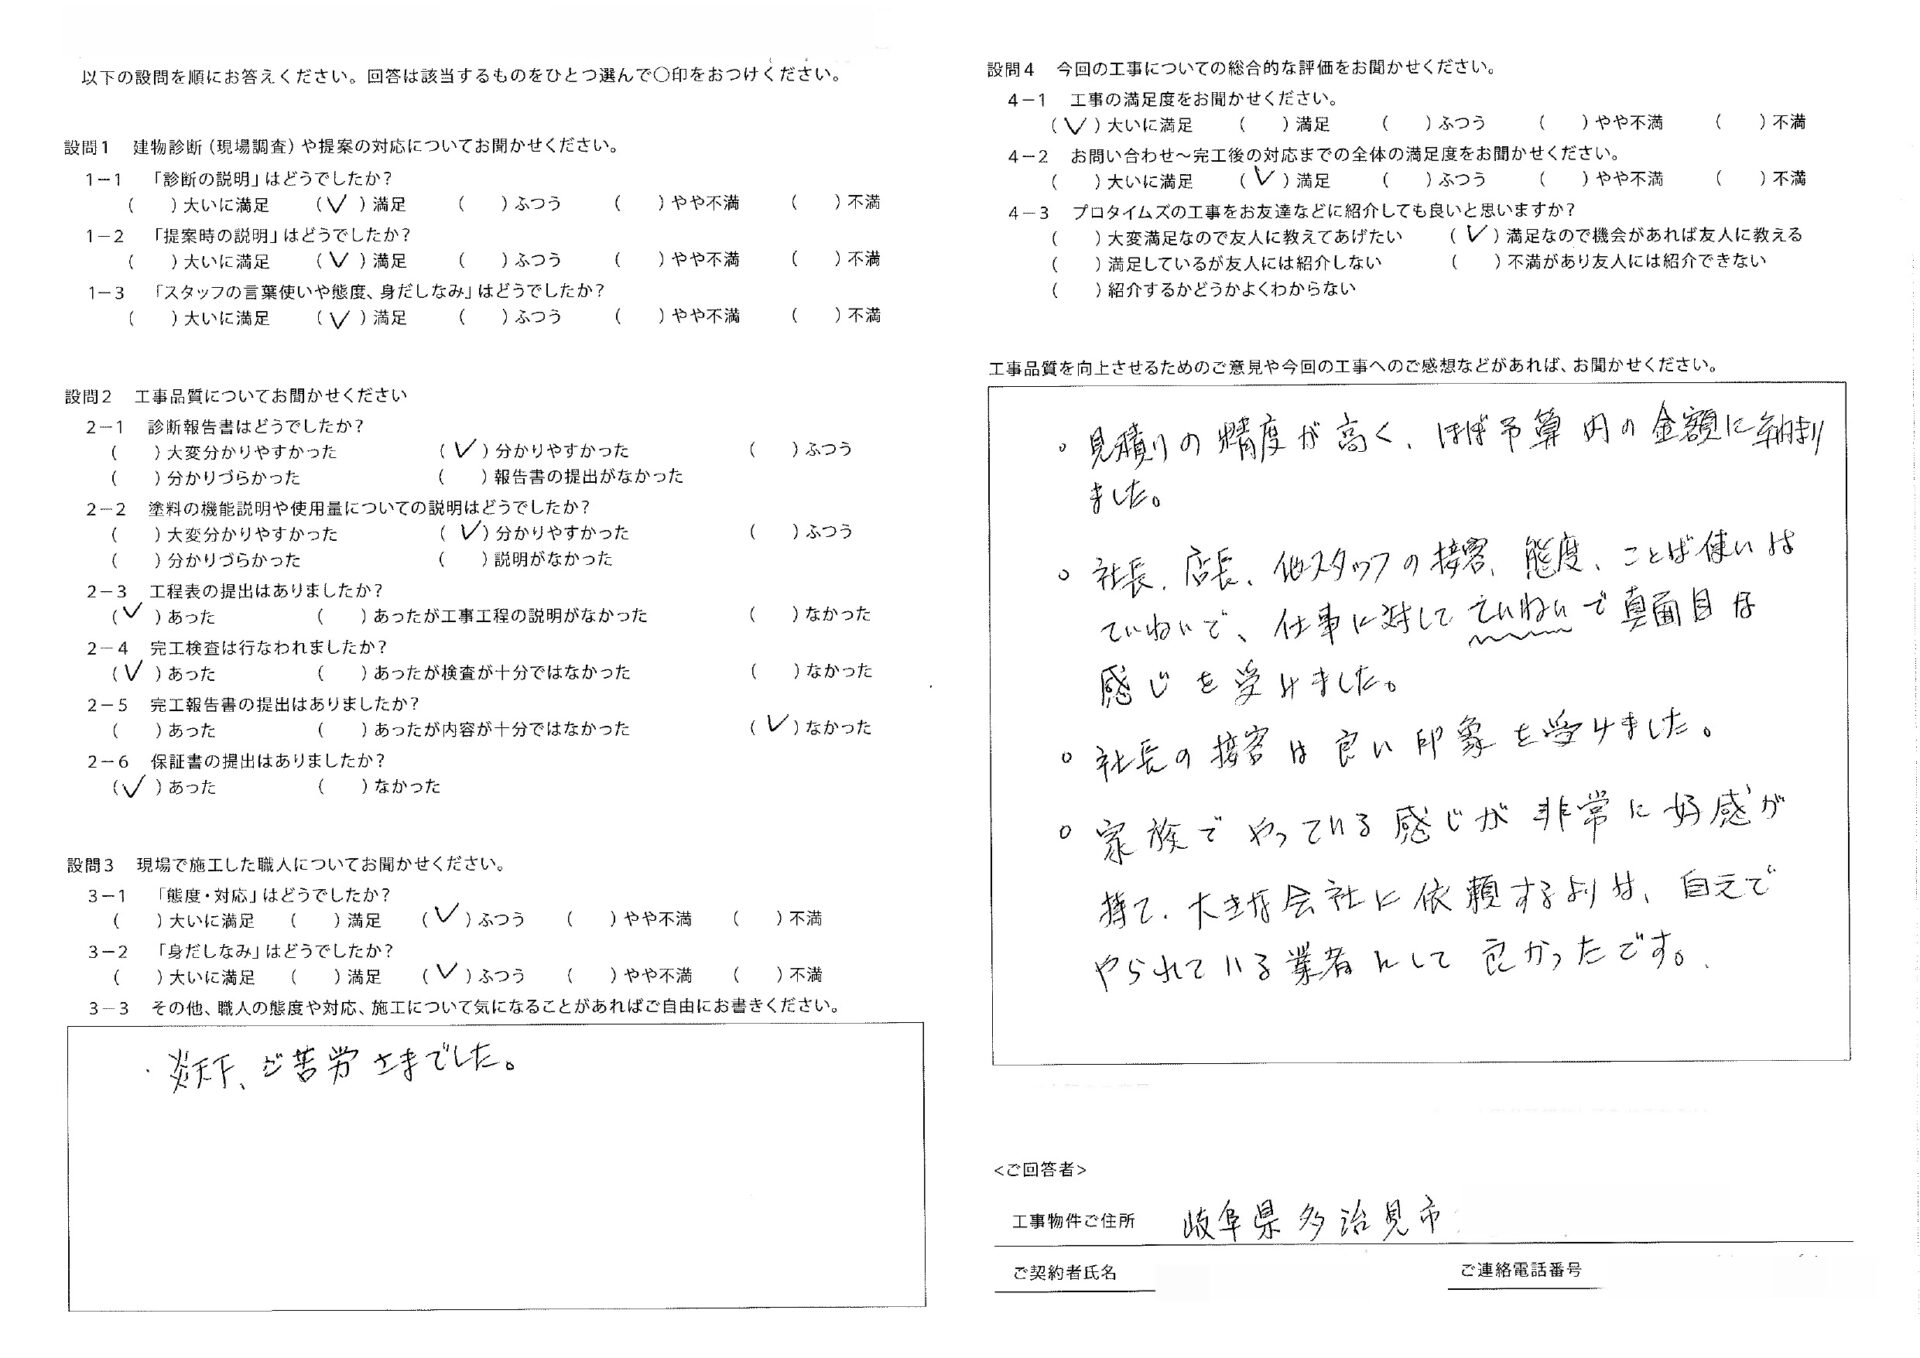 以下の設問を順にお答えください。回答は該当するものをひとつ選んで〇印をおつけください。
設問1 建物診断(現場調査)や提案の対応についてお聞かせください。
1-1 「診断の説明」はどうでしたか?
( )大いに満足 (✓)満足 ( )ふつう ( )やや不満 ( )不満
1-2 「提案時の説明」はどうでしたか?
( )大いに満足 (✓)満足 ( )ふつう ( )やや不満 ( )不満
1-3 「スタッフの言葉使いや態度、身だしなみ」はどうでしたか?
( )大いに満足 (✓)満足 ( )ふつう ( )やや不満 ( )不満
設問2 工事品質についてお聞かせください
2-1 診断報告書はどうでしたか?
( )大変分かりやすかった (✓)分かりやすかった ( )ふつう
( )分かりづらかった ( )報告書の提出がなかった
2-2 塗料の機能説明や使用量についての説明はどうでしたか?
( )大変分かりやすかった (✓)分かりやすかった ( )ふつう
( )分かりづらかった ( )説明がなかった
2-3 工程表の提出はありましたか?
(✓)あった ( )あったが工事工程の説明がなかった ( )なかった
2-4 完工検査は行なわれましたか?
(✓)あった ( )あったが検査が十分ではなかった ( )なかった
2-5 完工報告書の提出はありましたか?
( )あった ( )あったが内容が十分ではなかった (✓)なかった
2-6 保証書の提出はありましたか?
(✓)あった ( )なかった
設問3 現場で施工した職人についてお聞かせください。
3-1 「態度・対応」はどうでしたか?
( )大いに満足 ( )満足 (✓)ふつう ( )やや不満 ( )不満
3-2 「身だしなみ」はどうでしたか?
( )大いに満足 ( )満足 (✓)ふつう ( )やや不満 ( )不満
3-3 その他、職人の態度や対応、施工について気になることがあればご自由にお書きください。
・炎天下、ご苦労さまでした。
設問4 今回の工事についての総合的な評価をお聞かせください。
4-1 工事の満足度をお聞かせください。
(✓)大いに満足 ( )満足 ( )ふつう ( )やや不満 ( )不満
4-2 お問い合わせ〜完工後の対応までの全体の満足度をお聞かせください。
( )大いに満足 (✓)満足 ( )ふつう ( )やや不満 ( )不満
4-3 プロタイムズの工事をお友達などに紹介しても良いと思いますか?
( )大変満足なので友人に教えてあげたい (✓)満足なので機会があれば友人に教える
( )満足しているが友人には紹介しない ( )不満があり友人には紹介できない
( )紹介するかどうかよくわからない
工事品質を向上させるためのご意見や今回の工事へのご感想などがあれば、お聞かせください。
○見積りの精度が高く、ほぼ予算内の金額に納まり
ました。
○社長、店長、他スタッフの接客、態度、ことば使いは
ていねいで、仕事に対してていねいで真面目な
感じを受けました。
○社長の接客は良い印象を受けました。
○家族でやっている感じが非常に好感が
持て、大きな会社に依頼するよりは、自元で
やられている業者にして良かったです。
<ご回答者>
工事物件ご住所 岐阜県多治見市
ご契約者氏名 ご連絡電話番号